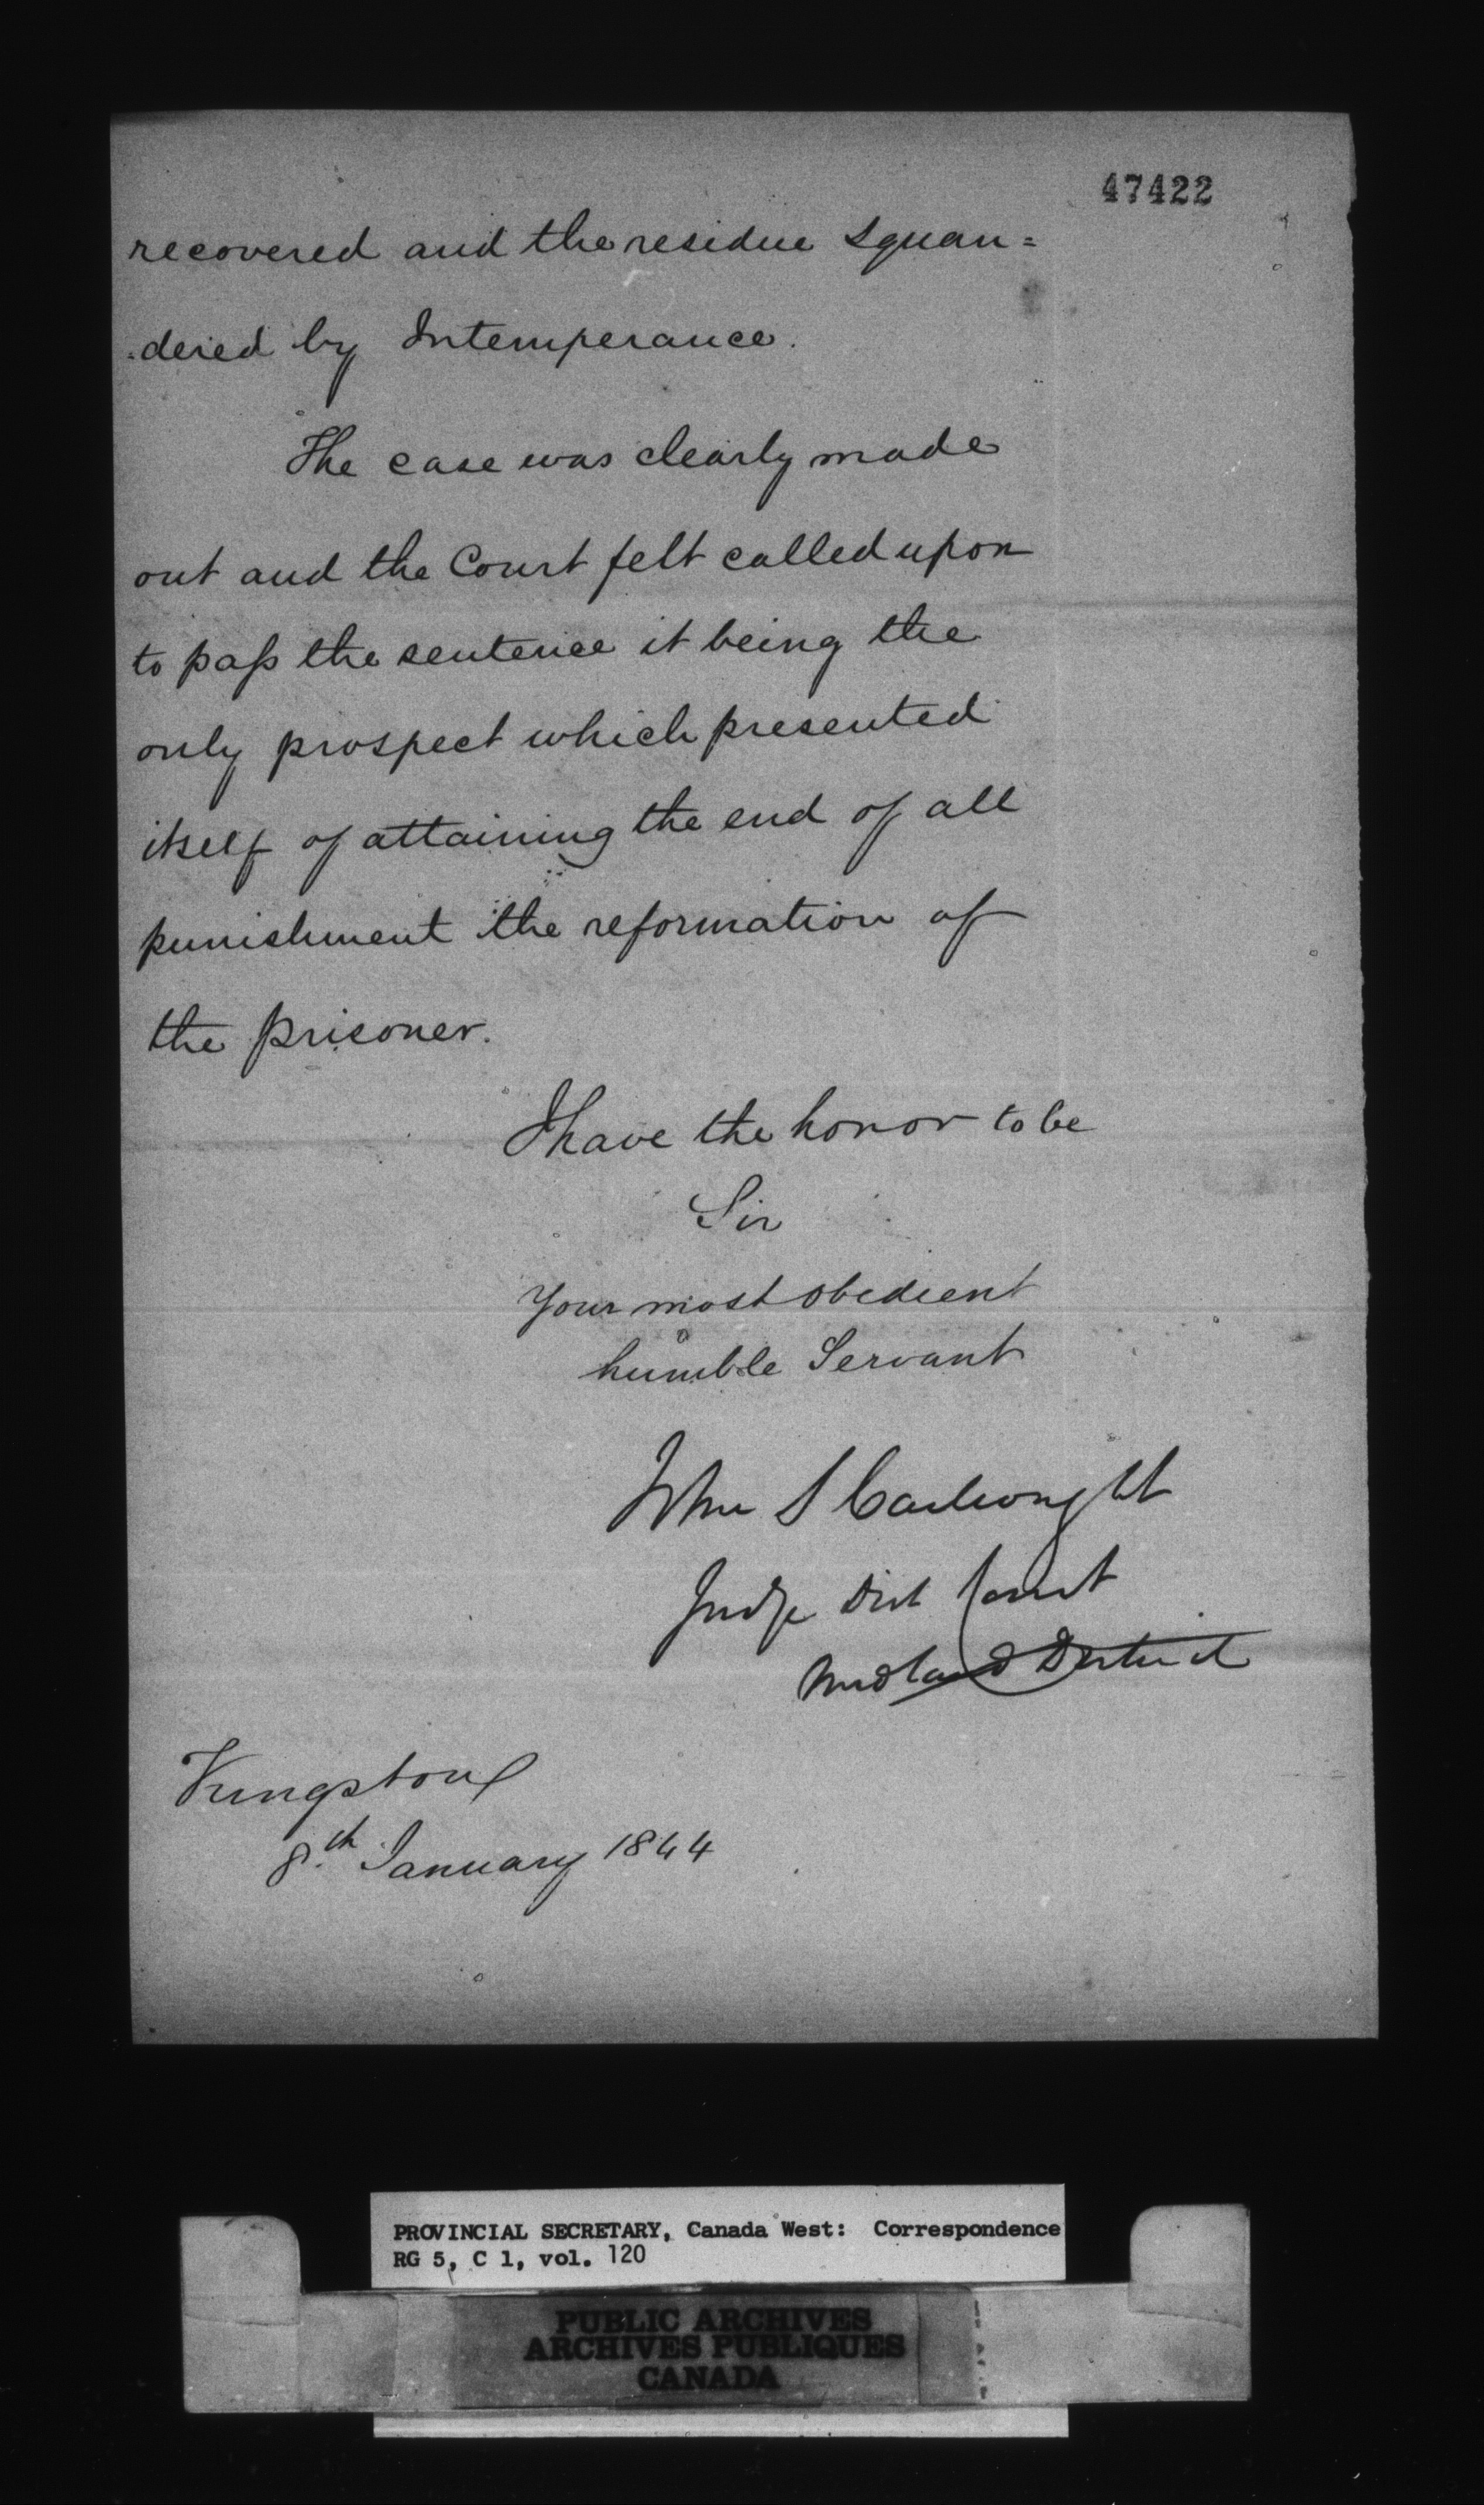 47422
recovered and the residue squan=
=dered by Intemperance.
The case was clearly made
out and the Court felt called upon
to paſs the sentence it being the
only prospect which presented
itself of attaining the end of all
punishment the reformation of
the prisoner.
I have the honor to be
Sir
Your most obedient
humble Servant
John S Cartwright
Judge Dist Court
Midland District
Kingston
8.th January 1844
PROVINCIAL SECRETARY, Canada West: Correspondence
RG 5, C 1, vol. 120
PUBLIC ARCHIVES
ARCHIVES PUBLIQUES
CANADA